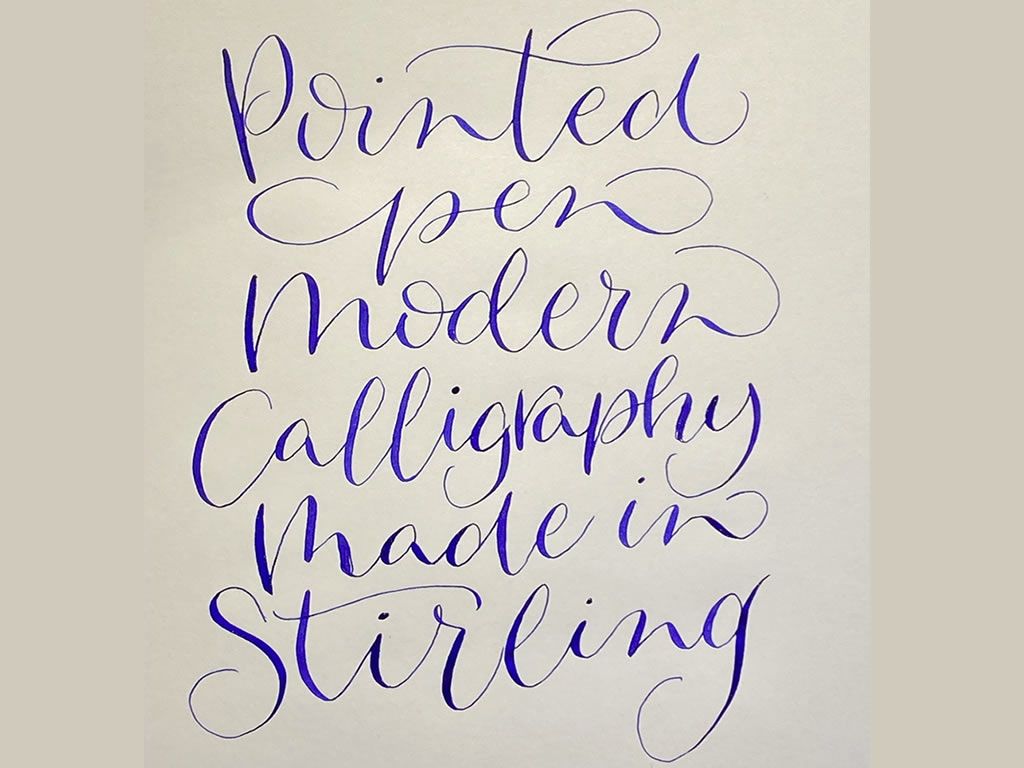 Pointed
pen
Modern
Calligraphy
Made in
Stirling